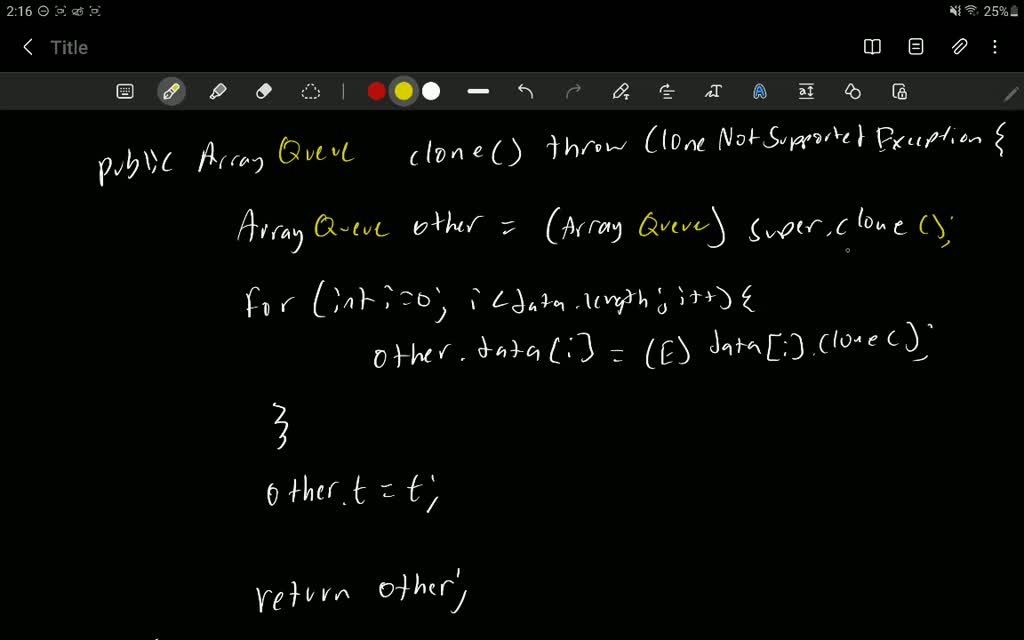 2:16 25%
Title
public Array Queue clone() throw CloneNotSupported Exception {
Array Queue other = (Array Queue) super.clone();
for (int i=0; i<data.length; i++){
other.data[i] = (E) data[i].clone();
}
other.t = t;
return other;